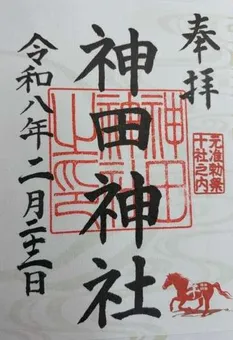 奉拝
元准勅祭
十社之内
神田神社
令和八年二月二十三日